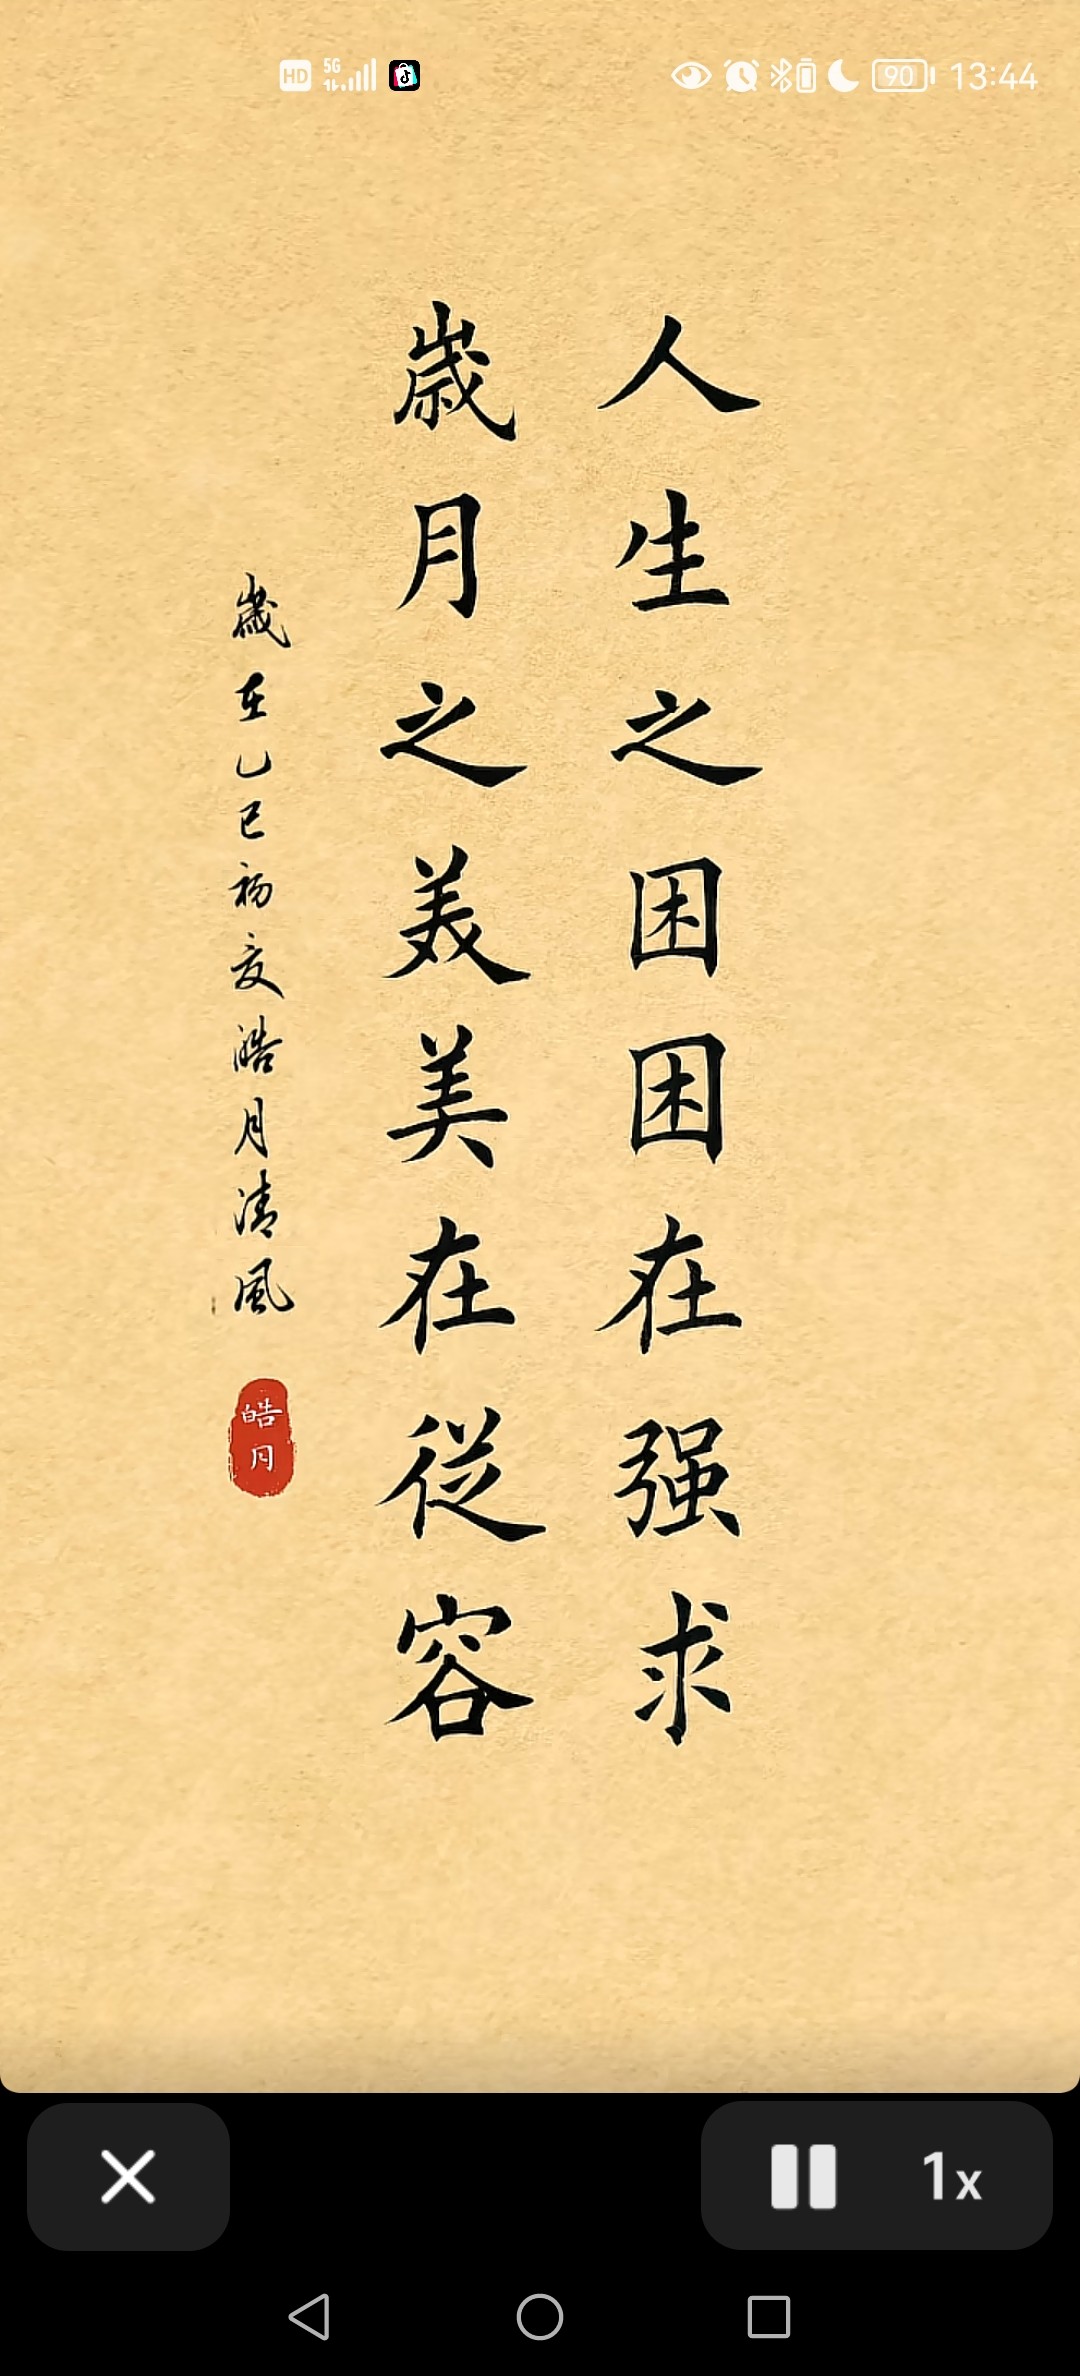 HD 5G 90 13:44
人生之困困在强求
歳月之美美在従容
歲在乙巳初夏皓月清風
皓月
1x